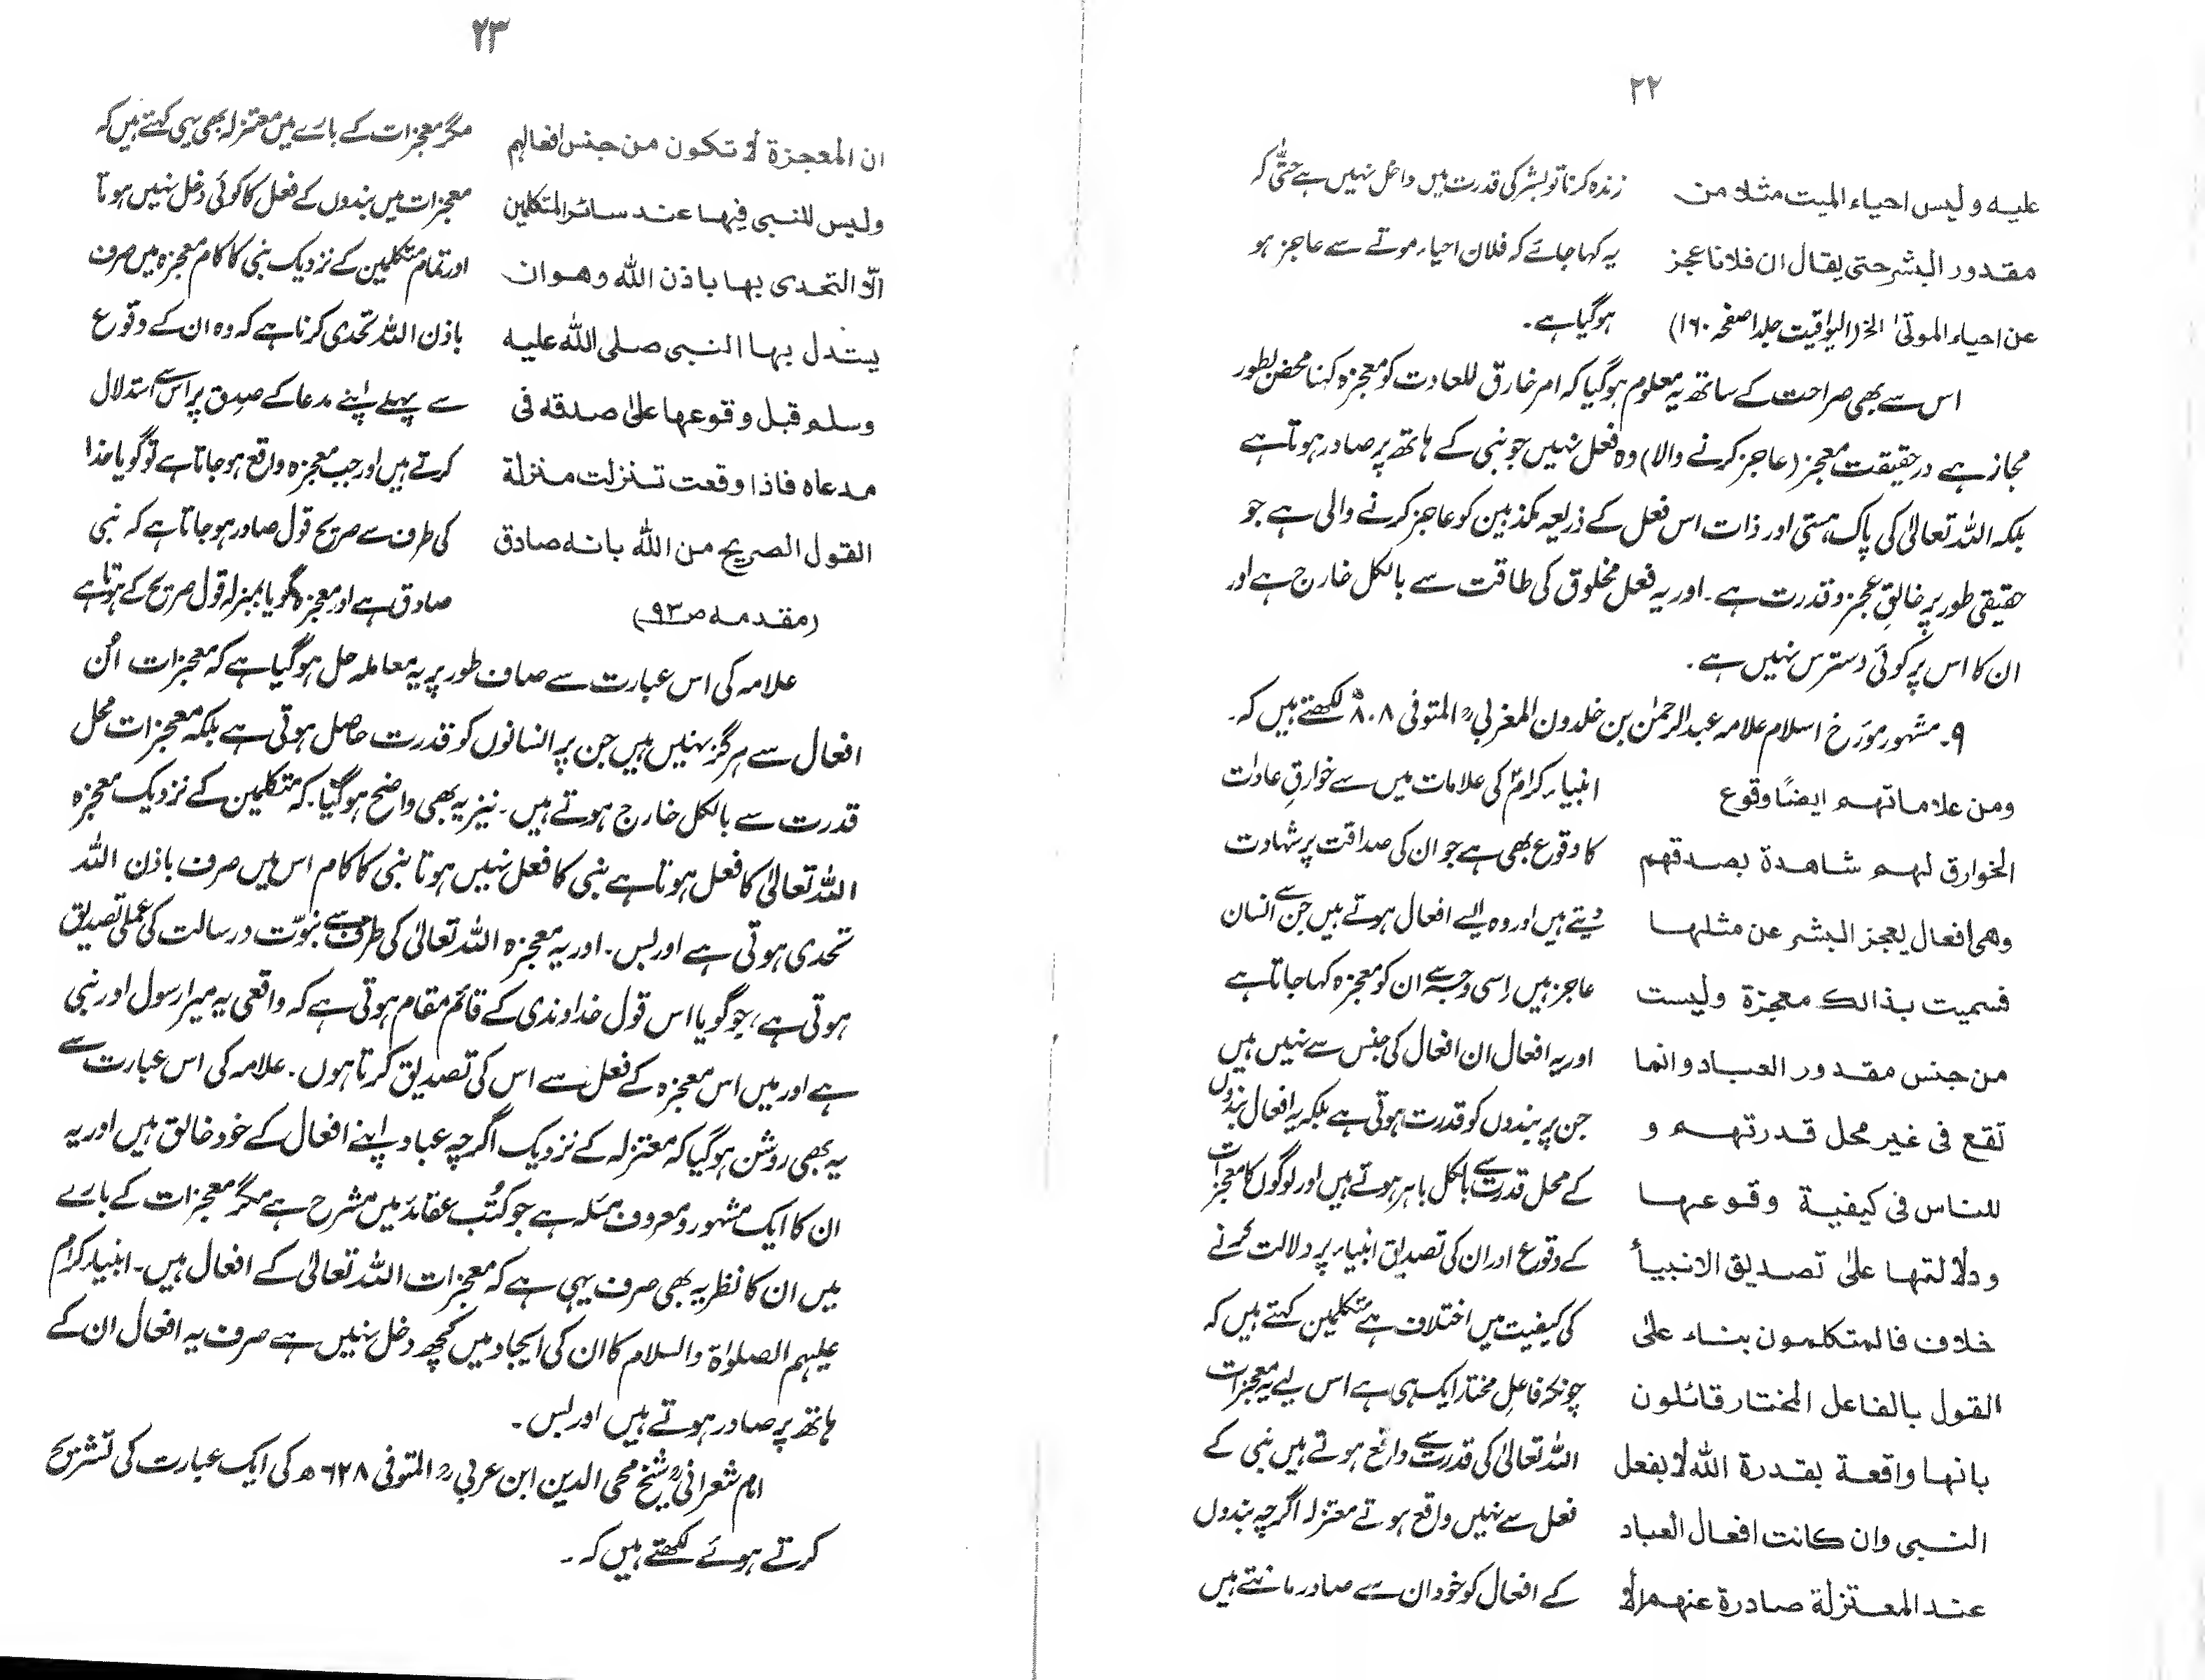 ۲۲
علیہ ولیس احیاء المیت مثلا من
مقدور البشر حتی یقال ان فلانا عجز
عن احیاء الموتیٰ الخ (الیواقیت جلد۱ صفحہ ۱۶۰)
زندہ کرنا تو بشر کی قدرت میں داخل نہیں ہے حتّٰی کہ
یہ کہا جائے کہ فلان احیاء موتے سے عاجز ہو
ہوگیا ہے۔
اس سے بھی صراحت کے ساتھ یہ معلوم ہوگیا کہ امر خارق للعادت کو معجزہ کہنا محض بطور
مجاز ہے درحقیقت معجز (عاجز کرنے والا) وہ فعل نہیں جو نبی کے ہاتھ پر صادر ہوتا ہے
بلکہ اللہ تعالیٰ کی پاک ہستی اور ذات اس فعل کے ذریعہ مکذبین کو عاجز کرنے والی ہے جو
حقیقی طور پر خالقِ عجز و قدرت ہے۔ اور یہ فعل مخلوق کی طاقت سے بالکل خارج ہے اور
ان کا اس پر کوئی دسترس نہیں ہے۔
۹۔ مشہور مؤرخ اسلام علامہ عبدالرحمٰن بن خلدون المغربیؒ المتوفی ۸۰۸ھ لکھتے ہیں کہ۔
ومن علاماتہم ایضًا وقوع
الخوارق لہم شاھدة بصدقھم
وھی افعال یعجز البشر عن مثلہا
فسمیت بذالک معجزة ولیست
من جنس مقدور العباد وانما
تقع فی غیر محل قدرتہم و
للناس فی کیفیة وقوعہا
ودلالتہا علیٰ تصدیق الانبیأ
خلاف فالمتکلمون بناء علیٰ
القول بالفاعل المختار قائلون
بانہا واقعة بقدرة اللہ لا بفعل
النبی وان کانت افعال العباد
عند المعتزلة صادرة عنہم الا
انبیاء کرامؑ کی علامات میں سے خوارقِ عادات
کا وقوع بھی ہے جو ان کی صداقت پر شہادت
دیتے ہیں اور وہ ایسے افعال ہوتے ہیں جن سے انسان
عاجز ہیں اِسی وجہ سے ان کو معجزہ کہا جاتا ہے
اور یہ افعال ان افعال کی جنس سے نہیں ہیں
جن پر بندوں کو قدرت ہوتی ہے بلکہ یہ افعال بندوں
کے محل قدرت سے بالکل باہر ہوتے ہیں اور لوگوں کا معجزات
کے وقوع اور ان کی تصدیق انبیاء پر دلالت کرنے
کی کیفیت میں اختلاف ہے متکلمین کہتے ہیں کہ
چونکہ فاعلِ مختار ایک ہی ہے اس لیے یہ معجزات
اللہ تعالیٰ کی قدرت سے واقع ہوتے ہیں نبی کے
فعل سے نہیں واقع ہوتے معتزلہ اگرچہ بندوں
کے افعال کو خود ان سے صادر مانتے ہیں
۲۳
ان المعجزة لا تکون من جنس افعالہم
ولیس للنبی فیہا عند سائر المتکلمین
الّا التحدی بہا باذن اللہ وھو ان
یستدل بہا النبی صلی اللہ علیہ
وسلم قبل وقوعہا علیٰ صدقہ فی
مدعاہ فاذا وقعت تنزلت منزلة
القول الصریح من اللہ بانہ صادق
(مقدمہ ص۹۳)
مگر معجزات کے بارے میں معتزلہ بھی یہی کہتے ہیں کہ
معجزات میں بندوں کے فعل کا کوئی دخل نہیں ہوتا
اور تمام متکلمین کے نزدیک نبی کا کام معجزہ میں صرف
باذن اللہ تحدی کرنا ہے کہ وہ ان کے وقوع
سے پہلے اپنے مدعا کے صدق پر اس سے استدلال
کرتے ہیں اور جب معجزہ واقع ہو جاتا ہے تو گویا خدا
کی طرف سے صریح قول صادر ہو جاتا ہے کہ نبی
صادق ہے اور معجزہ گویا بمنزلہ قول صریح کے ہوتا ہے
علامہ کی اس عبارت سے صاف طور پر یہ معاملہ حل ہوگیا ہے کہ معجزات اُن
افعال سے ہرگز نہیں ہیں جن پر انسانوں کو قدرت حاصل ہوتی ہے بلکہ معجزات محل
قدرت سے بالکل خارج ہوتے ہیں۔ نیز یہ بھی واضح ہوگیا۔ کہ متکلمین کے نزدیک معجزہ
اللہ تعالیٰ کا فعل ہوتا ہے نبی کا فعل نہیں ہوتا نبی کا کام اس میں صرف باذن اللہ
تحدی ہوتی ہے اور بس۔ اور یہ معجزہ اللہ تعالیٰ کی طرف سے نبوّت و رسالت کی عملی تصدیق
ہوتی ہے، جو گویا اس قول خداوندی کے قائم مقام ہوتی ہے کہ واقعی یہ میرا رسول اور نبی
ہے اور میں اس معجزہ کے فعل سے اس کی تصدیق کرتا ہوں۔ علامہ کی اس عبارت سے
یہ بھی روشن ہوگیا کہ معتزلہ کے نزدیک اگرچہ عباد اپنے افعال کے خود خالق ہیں اور یہ
ان کا ایک مشہور و معروف مسئلہ ہے جو کُتُب عقائد میں مشرح ہے مگر معجزات کے بارے
میں ان کا نظریہ بھی صرف یہی ہے کہ معجزات اللہ تعالیٰ کے افعال ہیں۔ انبیاء کرام
علیہم الصلوٰة والسلام کا ان کی ایجاد میں کچھ دخل نہیں ہے صرف یہ افعال ان کے
ہاتھ پر صادر ہوتے ہیں اور بس۔
امام شعرانیؒ شیخ محی الدین ابن عربیؒ المتوفی ۶۳۸ھ کی ایک عبارت کی تشریح
کرتے ہوئے لکھتے ہیں کہ۔